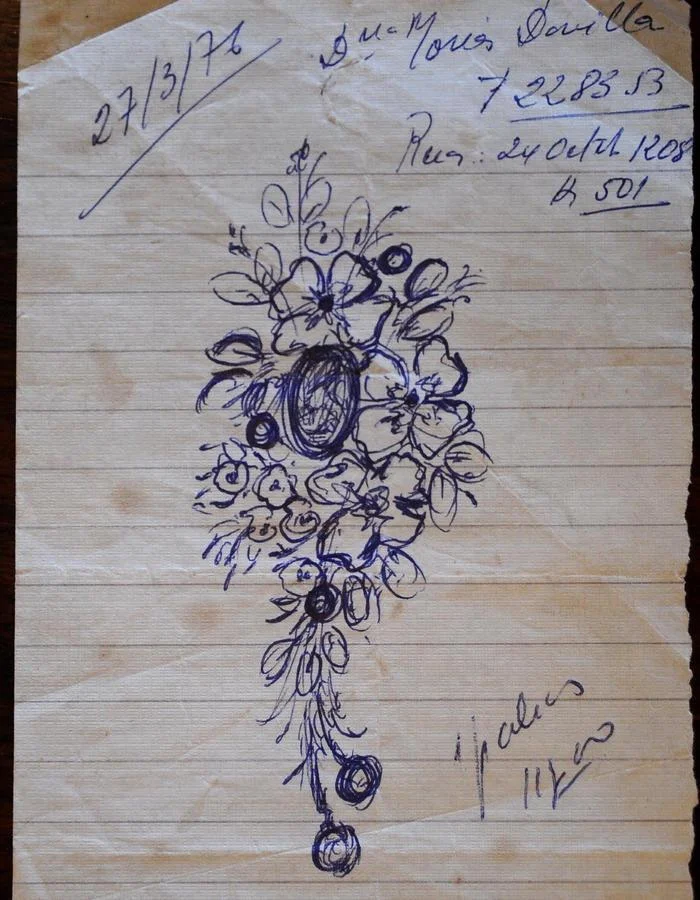 27/3/76
Dna Maria Davilla
7 228353
Rua: 24 Outub 1208
A 501